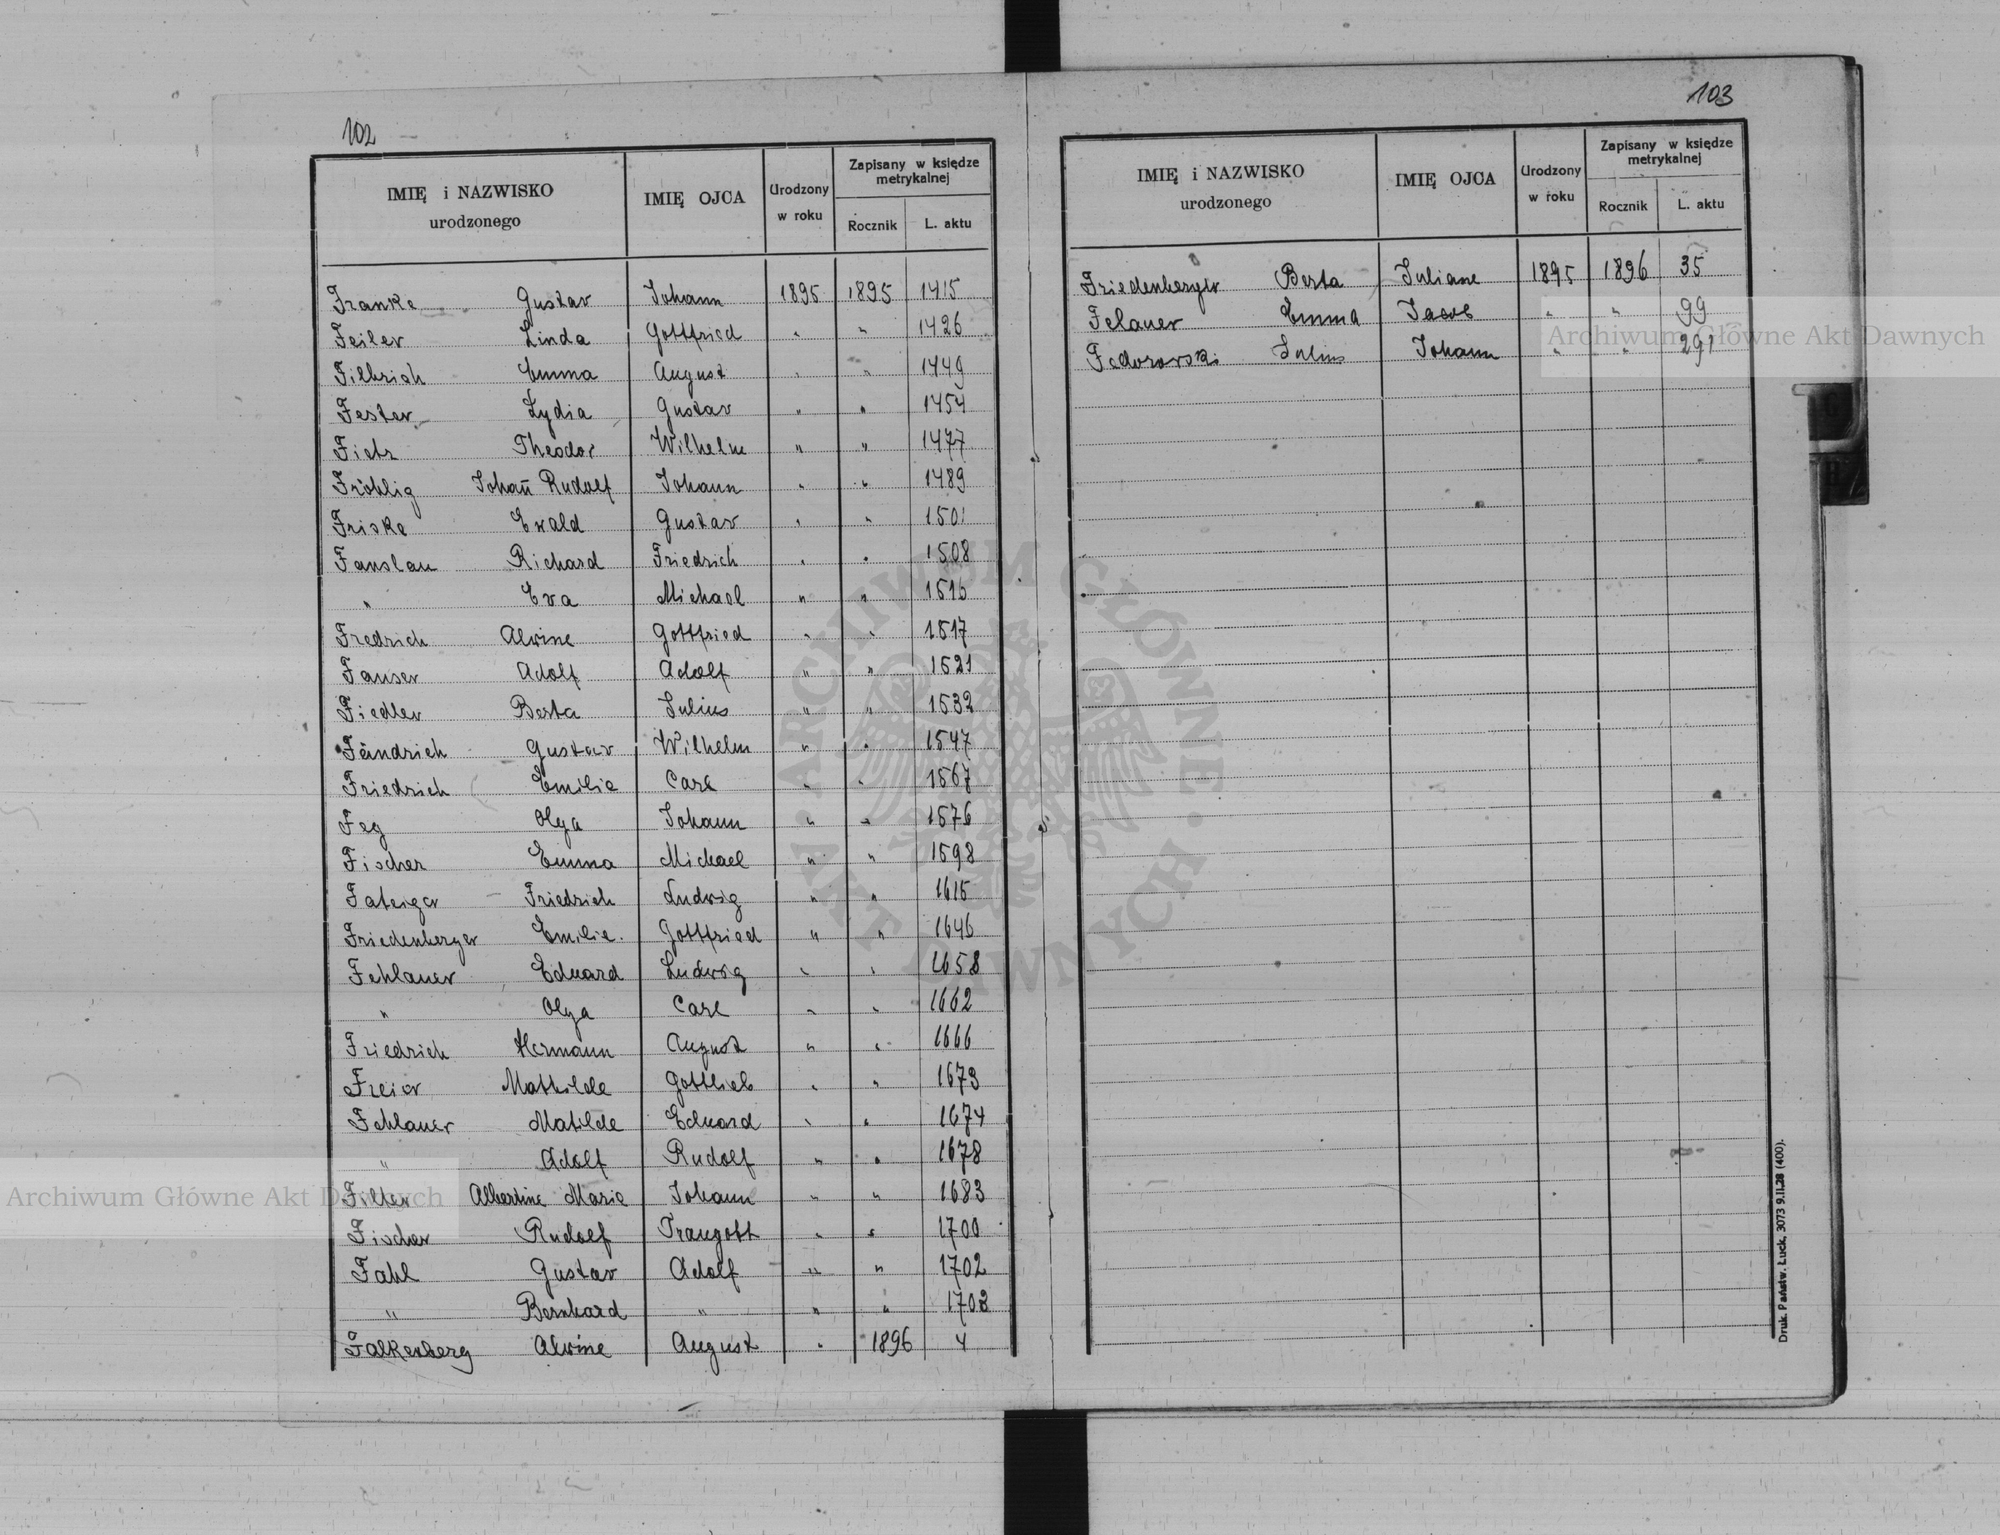 102
IMIĘ i NAZWISKO urodzonego IMIĘ OJCA Urodzony w roku Zapisany w księdze metrykalnej Rocznik L. aktu
Franke Gustav Johann 1895 1895 1415
Feiler Linda Gottfried " " 1426
Filbrich Emma August " " 1449
Fester Lydia Gustav " " 1454
Fietz Theodor Wilhelm " " 1477
Fröhlig Johañ Rudolf Johann " " 1489
Friske Ewald Gustav " " 1501
Fanslau Richard Friedrich " " 1508
" Eva Michael " " 1516
Fredrich Alwine Gottfried " " 1517
Fanser Adolf Adolf " " 1521
Fiedler Berta Julius " " 1532
Fändrich Gustav Wilhelm " " 1547
Friedrich Emilie Carl " " 1567
Feg Olga Johann " " 1576
Fischer Emma Michael " " 1598
Fateiger Friedrich Ludwig " " 1615
Friedenberger Emilie Gottfried " " 1646
Fehlauer Eduard Ludwig " " 1658
" Olga Carl " " 1662
Friedrich Hermann August " " 1666
Freier Mathilde Gottlieb " " 1673
Fehlauer Matilde Eduard " " 1674
" Adolf Rudolf " " 1678
Filler Albertine Marie Johann " " 1683
Fischer Rudolf Traugott " " 1700
Fahl Gustav Adolf " " 1702
" Bernhard " " " 1703
Falkenberg Alwine August " 1896 4
103
IMIĘ i NAZWISKO urodzonego IMIĘ OJCA Urodzony w roku Zapisany w księdze metrykalnej Rocznik L. aktu
Friedenberger Berta Juliane 1895 1896 35
Felauer Emma Jacob " " 99
Fedorowski Julius Johann " " 291
Druk. Państw. Łuck, 3073 9.II.28 (400).
Archiwum Główne Akt Dawnych
Archiwum Główne Akt Dawnych
ARCHIWUM GŁÓWNE AKT DAWNYCH